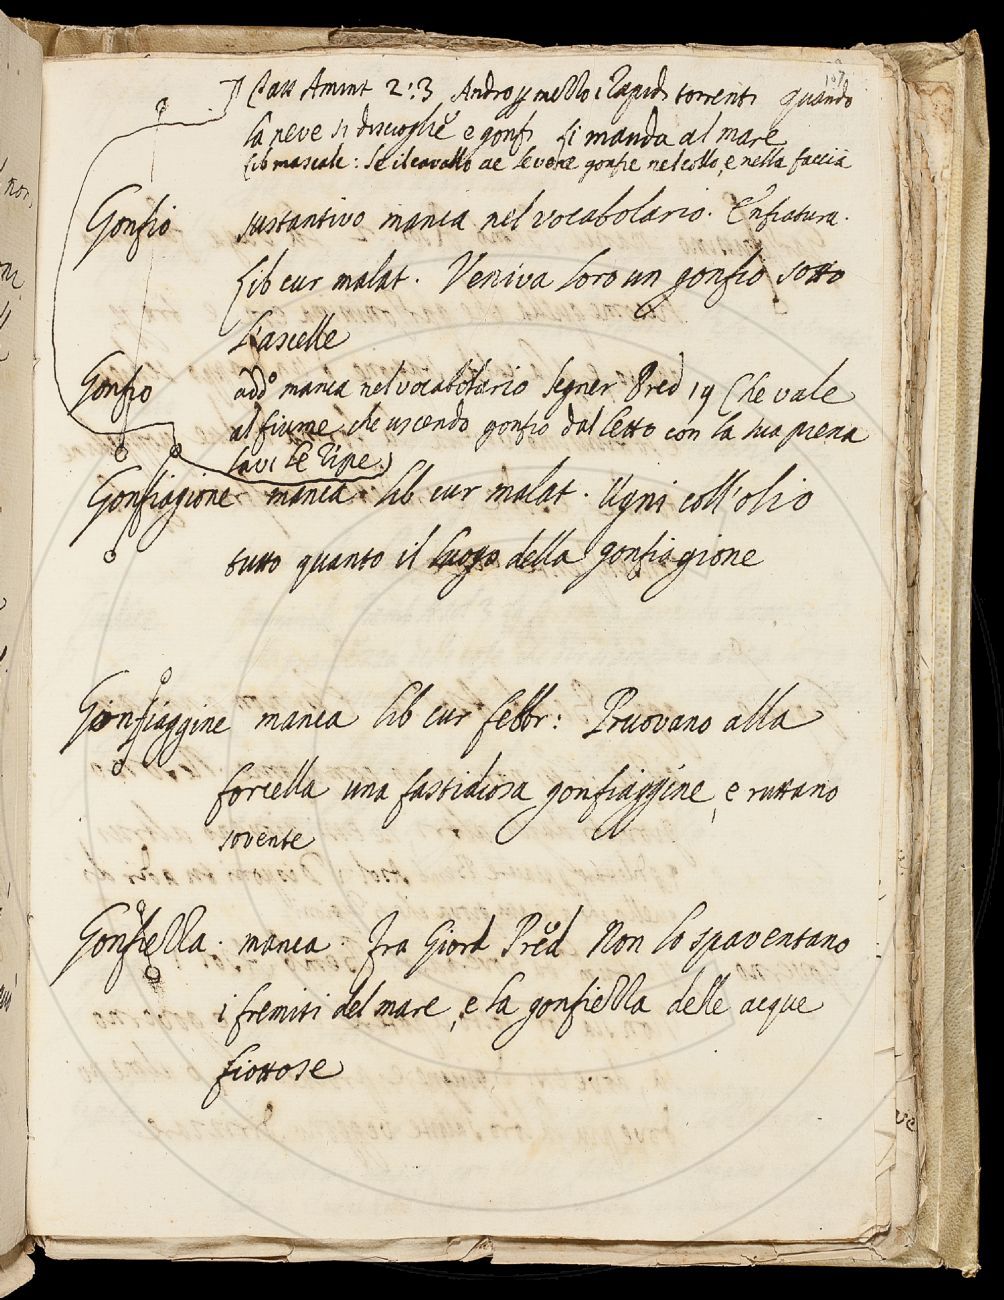 107
Tass Amint 2:3 Andro p mezzo i rapidi torrenti quando
la neve si discioglie e gonfi li manda al mare
Lib mascalc: Se il cavallo ae le vene gonfie nel collo, e nella faccia
Gonfio sustantivo manca nel vocabolario. Enfiatura.
Lib cur malat. Veniva loro un gonfio sotto
l'ascelle
Gonfio add.o manca nel vocabolario Segner Pred 19 Che vale
al fiume che uscendo gonfio dal letto con la sua piena
lavi le ripe.
Gonfiagione manca Lib cur malat. Ugni coll'olio
tutto quanto il luogo della gonfiagione
Gonfiaggine manca Lib cur febbr: Pruovano alla
forcella una fastidiosa gonfiaggine, e ruttano
sovente
Gonfiezza. manca Fra Giord Pred Non lo spaventano
i fremiti del mare, e la gonfiezza delle acque
fiottose